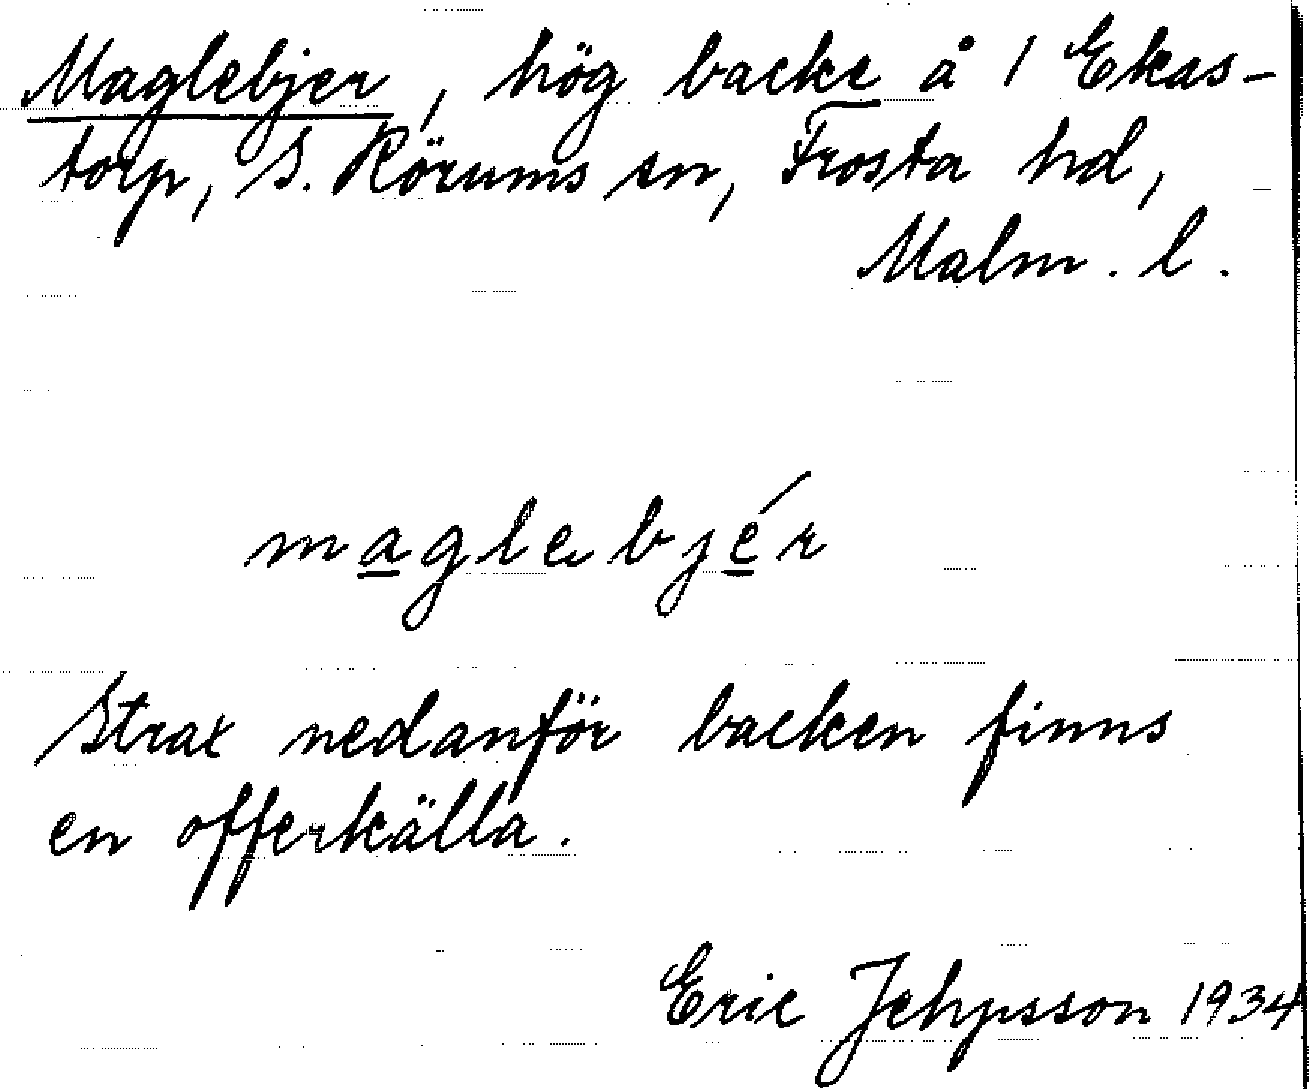 Maglebjer, hög backe å 1 Ekas-
torp, S. Rörums sn, Frosta hd,
Malm. l.
maglebjér
Strax nedanför backen finns
en offerkälla.
Eric Jehpsson 1934